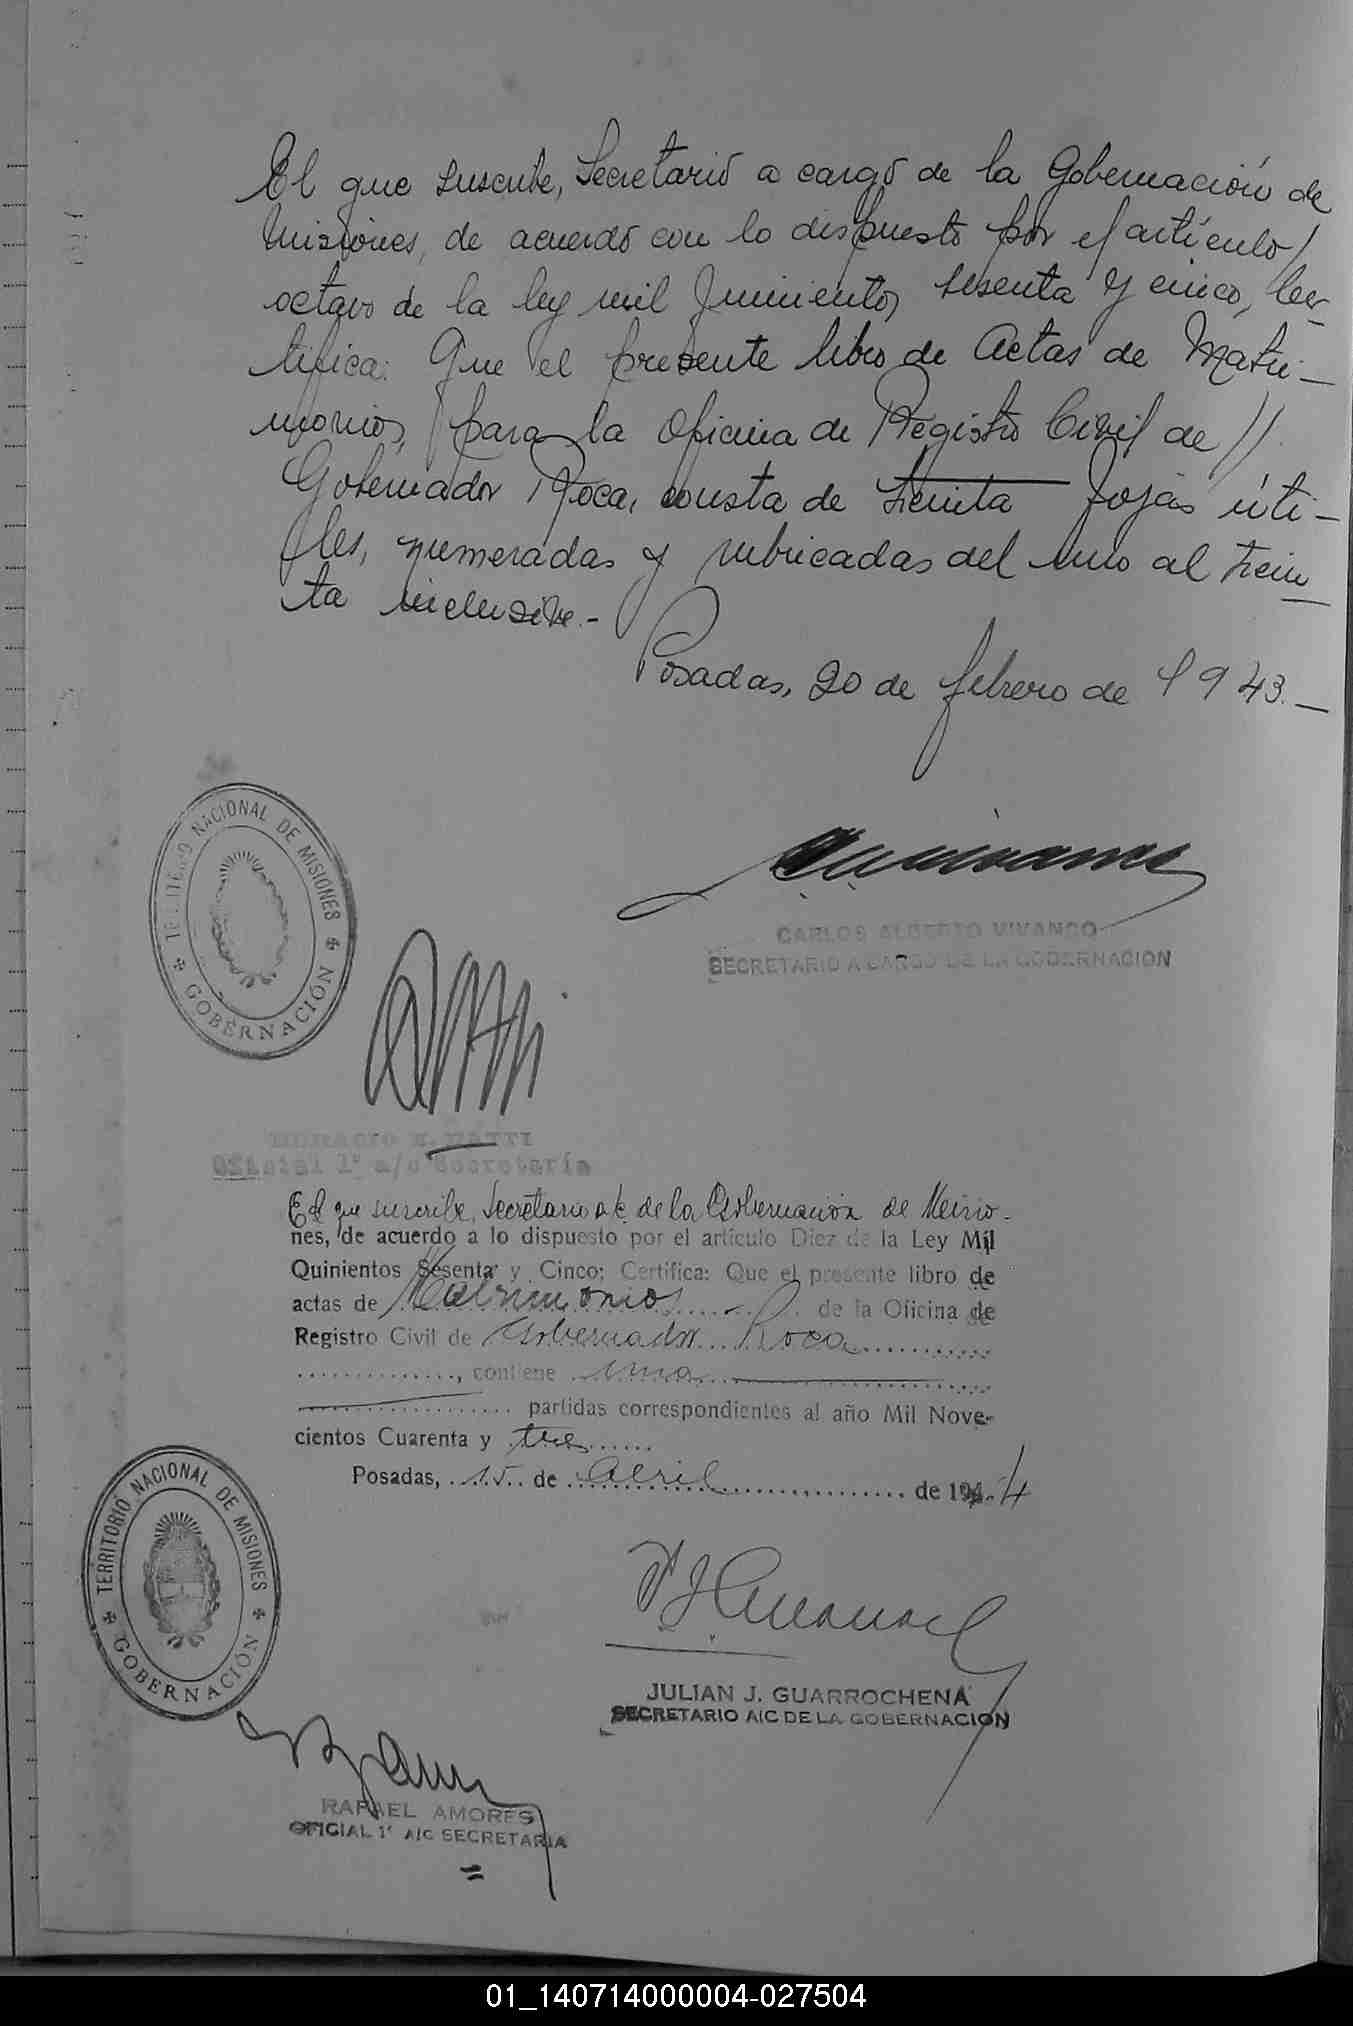 El que suscribe, Secretario a cargo de la Gobernación de
Misiones, de acuerdo con lo dispuesto por el artículo/
octavo de la ley mil quinientos sesenta y cinco, Cer-
tifica: Que el presente libro de Actas de Matri-
monios, para la Oficina de Registro Civil de //
Gobernador Roca, consta de treinta fojas úti-
les, numeradas y rubricadas del uno al trein
ta inclusive.-
Posadas, 20 de febrero de 1943.-
TERRITORIO NACIONAL DE MISIONES
GOBERNACIÓN
CARLOS ALBERTO VIVANCO
SECRETARIO A CARGO DE LA GOBERNACION
HORACIO E. RATTI
Oficial 1º a/c Secretaría
El que suscribe, Secretario a/c. de la Gobernación de Misio-
nes, de acuerdo a lo dispuesto por el artículo Diez de la Ley Mil
Quinientos Sesenta y Cinco; Certifica: Que el presente libro de
actas de Matrimonios de la Oficina de
Registro Civil de Gobernador Roca
, contiene una
partidas correspondientes al año Mil Nove-
cientos Cuarenta y tres
Posadas, 15 de abril de 194 4
TERRITORIO NACIONAL DE MISIONES
GOBERNACIÓN
JULIAN J. GUARROCHENA
SECRETARIO A/C DE LA GOBERNACION
RAFAEL AMORES
OFICIAL 1º A/C SECRETARIA
01_140714000004-027504